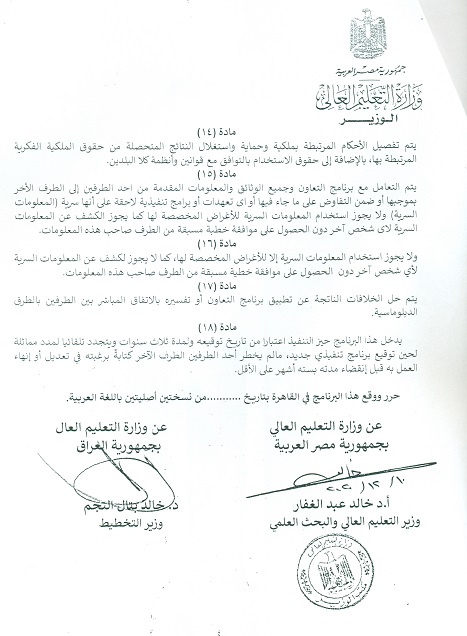 جمهورية مصر العربية
وزارة التعليم العالي
الوزير
مادة (١٤)
يتم تفصيل الأحكام المرتبطة بملكية وحماية واستغلال النتائج المتحصلة من حقوق الملكية الفكرية
المرتبطة بها، بالإضافة إلى حقوق الاستخدام بالتوافق مع قوانين وأنظمة كلا البلدين.
مادة (١٥)
يتم التعامل مع برنامج التعاون وجميع الوثائق والمعلومات المقدمة من احد الطرفين إلى الطرف الأخر
بموجبها أو ضمن التفاوض على ما جاء فيها أو اى تعهدات أو برامج تنفيذية لاحقة على أنها سرية (المعلومات
السرية) ولا يجوز استخدام المعلومات السرية للأغراض المخصصة لها كما يجوز الكشف عن المعلومات
السرية لاى شخص آخر دون الحصول على موافقة خطية مسبقة من الطرف صاحب هذه المعلومات.
مادة (١٦)
ولا يجوز استخدام المعلومات السرية إلا للأغراض المخصصة لها، كما لا يجوز لكشف عن المعلومات السرية
لأي شخص آخر دون الحصول على موافقة خطية مسبقة من الطرف صاحب هذه المعلومات.
مادة (١٧)
يتم حل الخلافات الناتجة عن تطبيق برنامج التعاون أو تفسيره بالاتفاق المباشر بين الطرفين بالطرق
الدبلوماسية.
مادة (١٨)
يدخل هذا البرنامج حيز التنفيذ اعتبارا من تاريخ توقيعه ولمدة ثلاث سنوات ويتجدد تلقائيا لمدد مماثلة
لحين توقيع برنامج تنفيذي جديد، مالم يخطر أحد الطرفين الطرف الآخر كتابة برغبته في تعديل أو إنهاء
العمل به قبل إنقضاء مدته بستة أشهر على الأقل.
حرر ووقع هذا البرنامج في القاهرة بتاريخ ...........من نسختين أصليتين باللغة العربية.
عن وزارة التعليم العالي
بجمهورية مصر العربية
٢٠٢٠/١٢/١٠
أ.د خالد عبد الغفار
وزير التعليم العالي والبحث العلمي
عن وزارة التعليم العال
بجمهورية العراق
د. خالد بتال النجم
وزير التخطيط